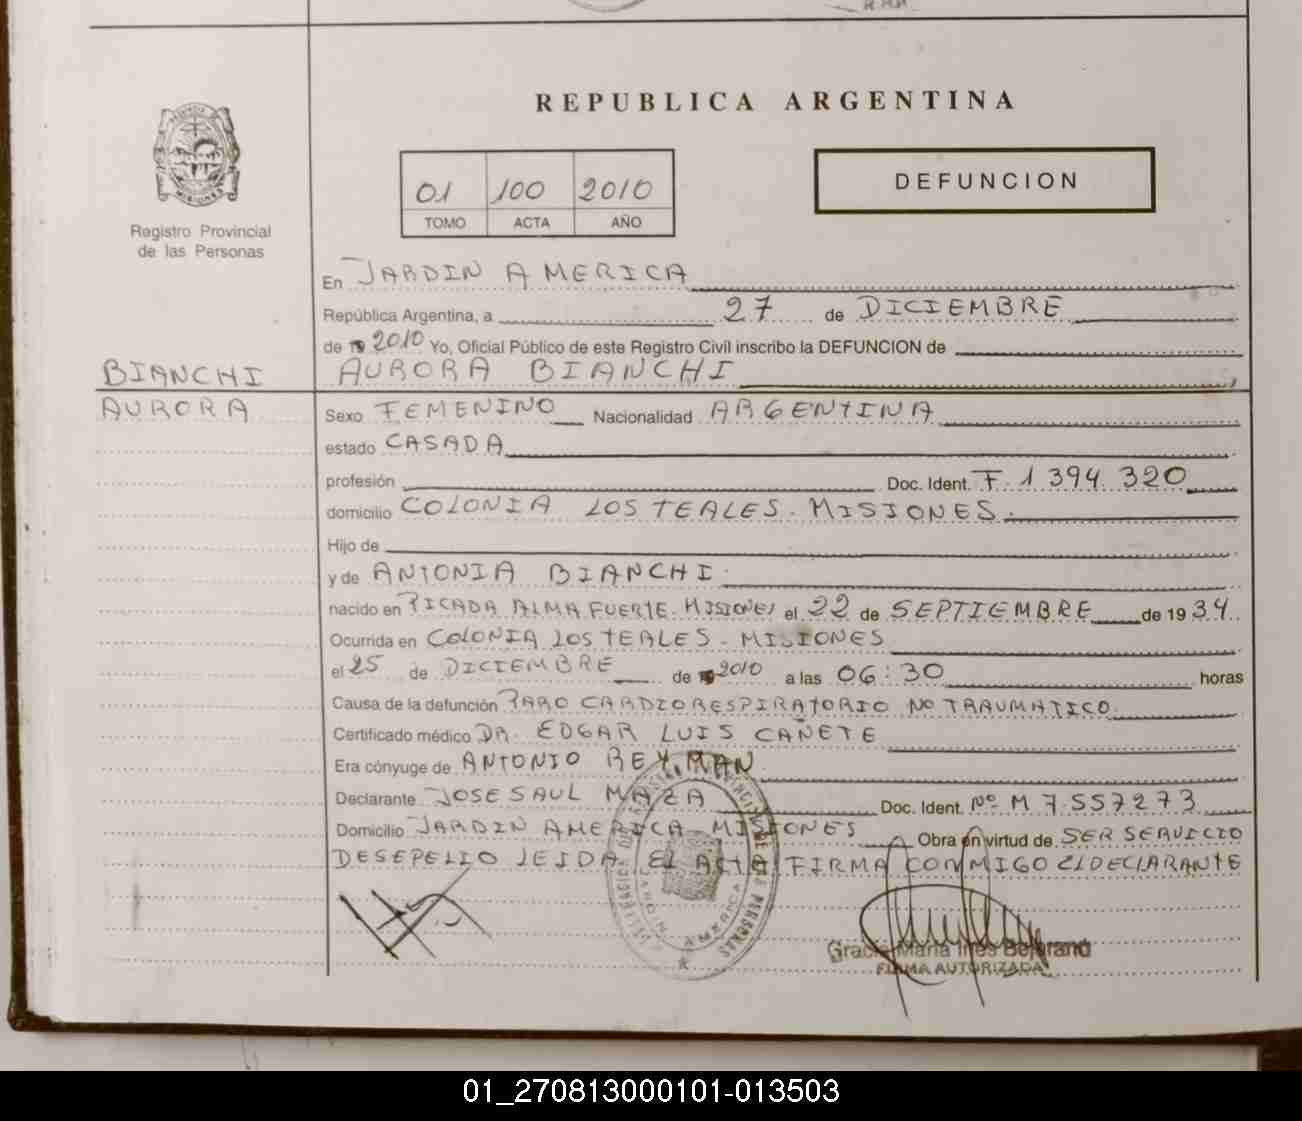 REPUBLICA ARGENTINA
01 100 2010
TOMO ACTA AÑO
DEFUNCION
Registro Provincial
de las Personas
En JARDIN AMERICA
República Argentina, a 27 de DICIEMBRE
de 19 2010 Yo, Oficial Público de este Registro Civil inscribo la DEFUNCION de
BIANCHI AURORA BIANCHI
AURORA
Sexo FEMENINO Nacionalidad ARGENTINA
estado CASADA
profesión Doc. Ident. F. 1 394 320
domicilio COLONIA LOS TEALES. MISIONES.
Hijo de
y de ANTONIA BIANCHI.
nacido en PICADA ALMA FUERTE. MISIONES el 22 de SEPTIEMBRE de 19 34
Ocurrida en COLONIA LOS TEALES. MISIONES
el 25 de DICIEMBRE de 2010 a las 06:30 horas
Causa de la defunción PARO CARDIORESPIRATORIO NO TRAUMATICO.
Certificado médico DR. EDGAR LUIS CAÑETE
Era cónyuge de ANTONIO REYMAN
Declarante JOSE SAUL MAZA Doc. Ident. Nº M 7.557273
Domicilio JARDIN AMERICA MISIONES Obra en virtud de SER SERVICIO
DESEPELIO LEIDA EL ACTA FIRMA CONMIGO EL DECLARANTE
JARDIN AMERICA
Maria Ines Bejarano
FIRMA AUTORIZADA
01_270813000101-013503